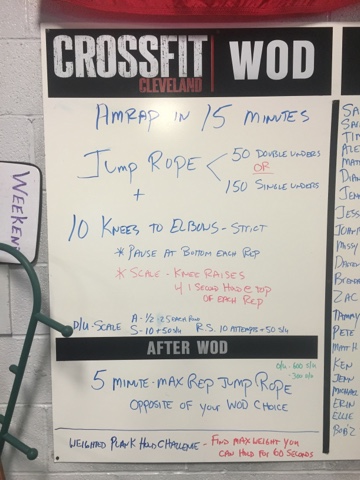 CROSSFIT CLEVELAND | WOD
AMRAP IN 15 MINUTES
JUMP ROPE < 50 DOUBLE UNDERS
OR
150 SINGLE UNDERS
+
10 KNEES TO ELBOWS - STRICT
* PAUSE AT BOTTOM EACH REP
* SCALE - KNEE RAISES
1 SECOND HOLD @ TOP
OF EACH REP
D/U - SCALE A - 1/2 - 25 each RND
S - 10 + 50 S/U R.S. 10 ATTEMPTS + 50 S/U
AFTER WOD
5 MINUTE - MAX REP JUMP ROPE
OPPOSITE OF YOUR WOD CHOICE
WEIGHTED PLANK HOLD CHALLENGE - FIND MAX WEIGHT YOU
CAN HOLD FOR 60 SECONDS
WEEKEN
SA
SA
TIM
ALE
MAT
DIAN
JEN
JESS
JOHN
MISSY
ZAC
TAMMY
PETE
MATT H
KEN
JENN
MICHAEL
ERIN
ELLIE
BOB'Z